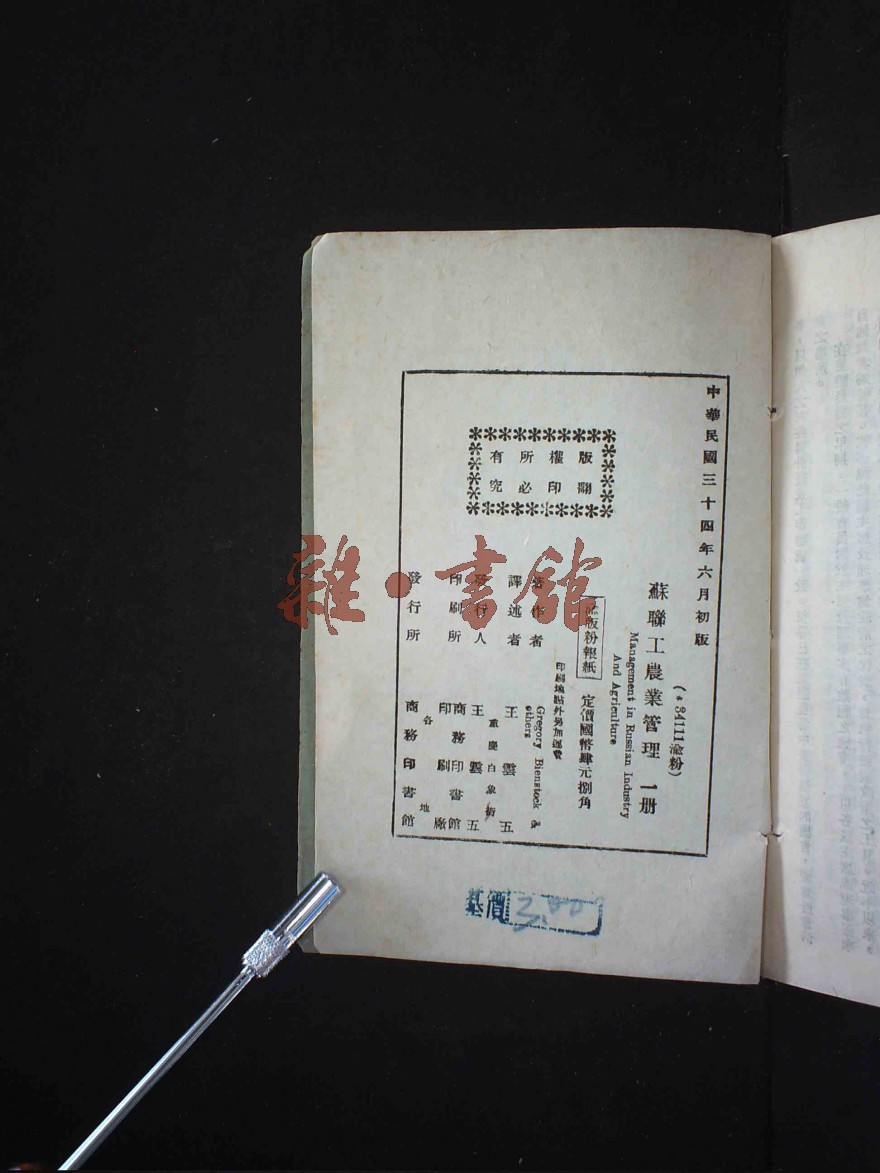 中華民國三十四年六月初版
(*34111渝粉)
蘇聯工農業管理 1册
Management in Russian Industry
And Agriculture
渝版粉報紙 定價國幣肆元捌角
印刷地點外另加運費
版權所有
翻印必究
著作者 Gregory Bienstock & others
譯述者 王雲五
重慶白象街
發行人 王雲五
印刷所 商務印書館
印刷廠
各地
發行所 商務印書館
基價 3.00
雜·書館